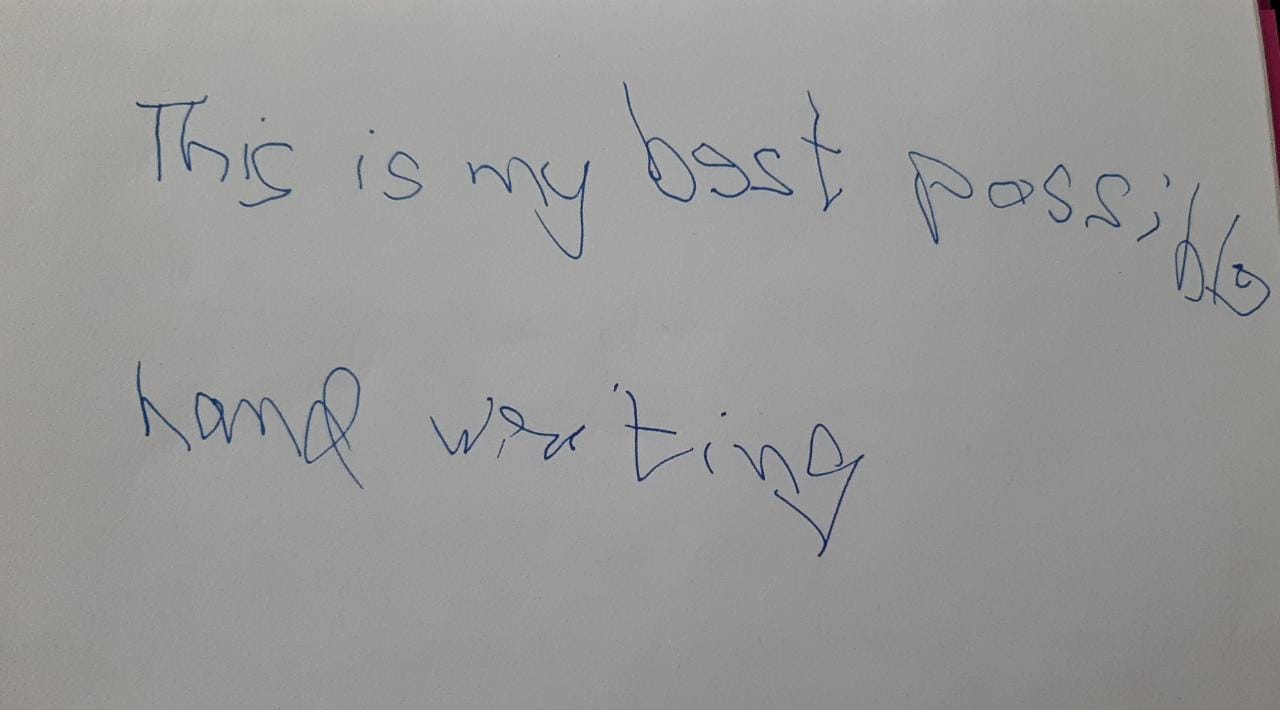 This is my best possible
hand writing